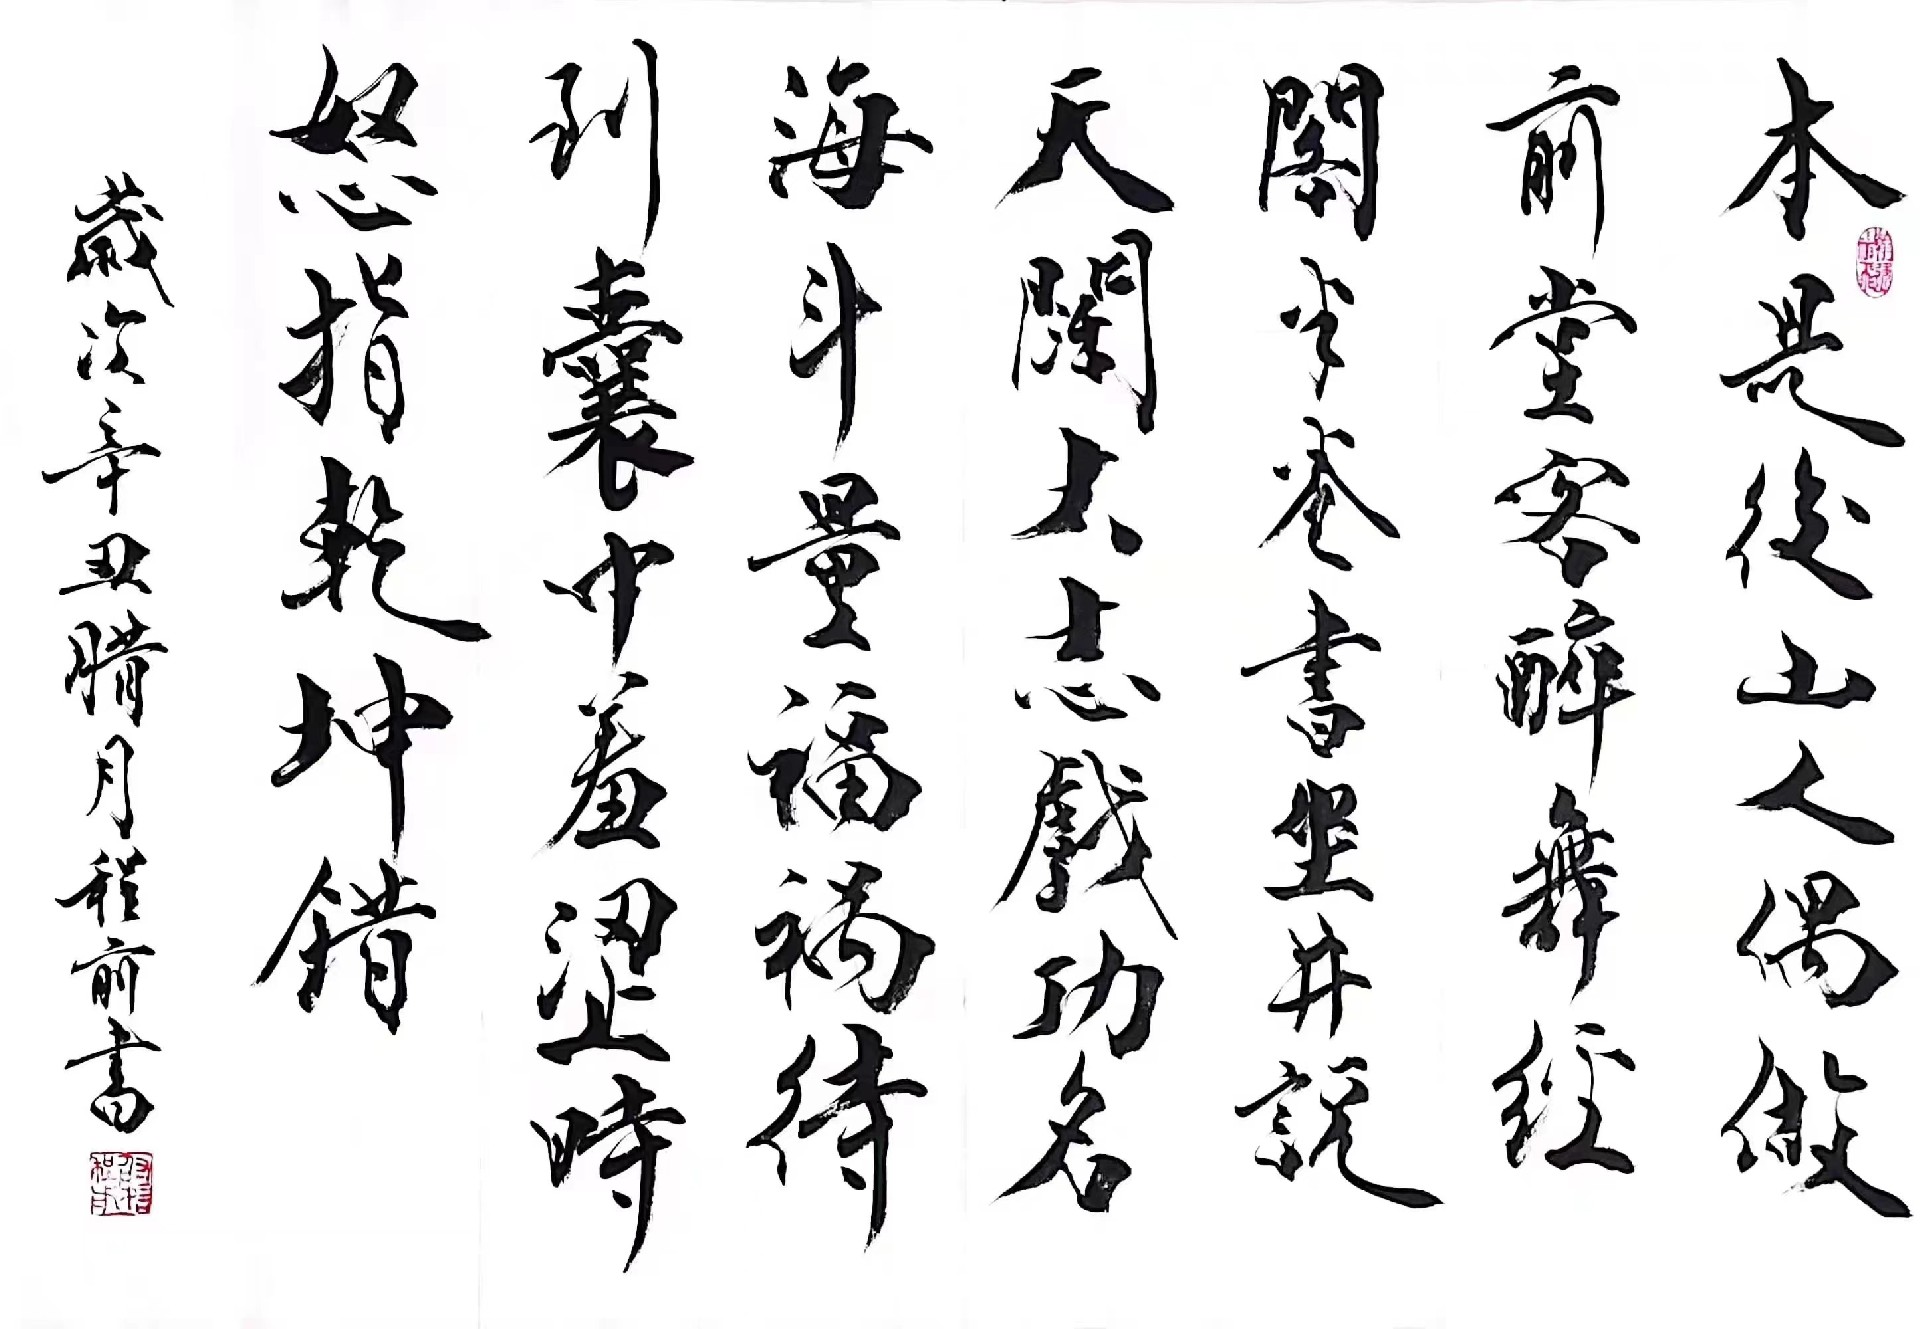 本是後山人偶做
前堂客醉舞經
閣半卷書坐井説
天闊大志戲功名
海斗量福禍待
到囊中羞涩時
怒指乾坤錯
歲次辛丑腊月程前書